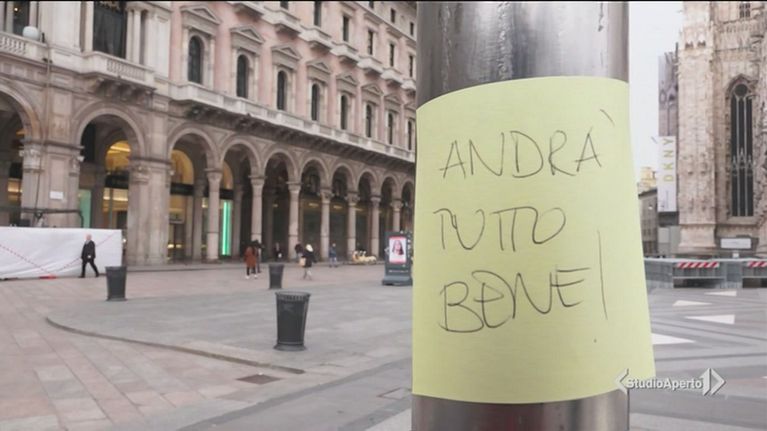 ANDRÀ
TUTTO
BENE!
StudioAperto